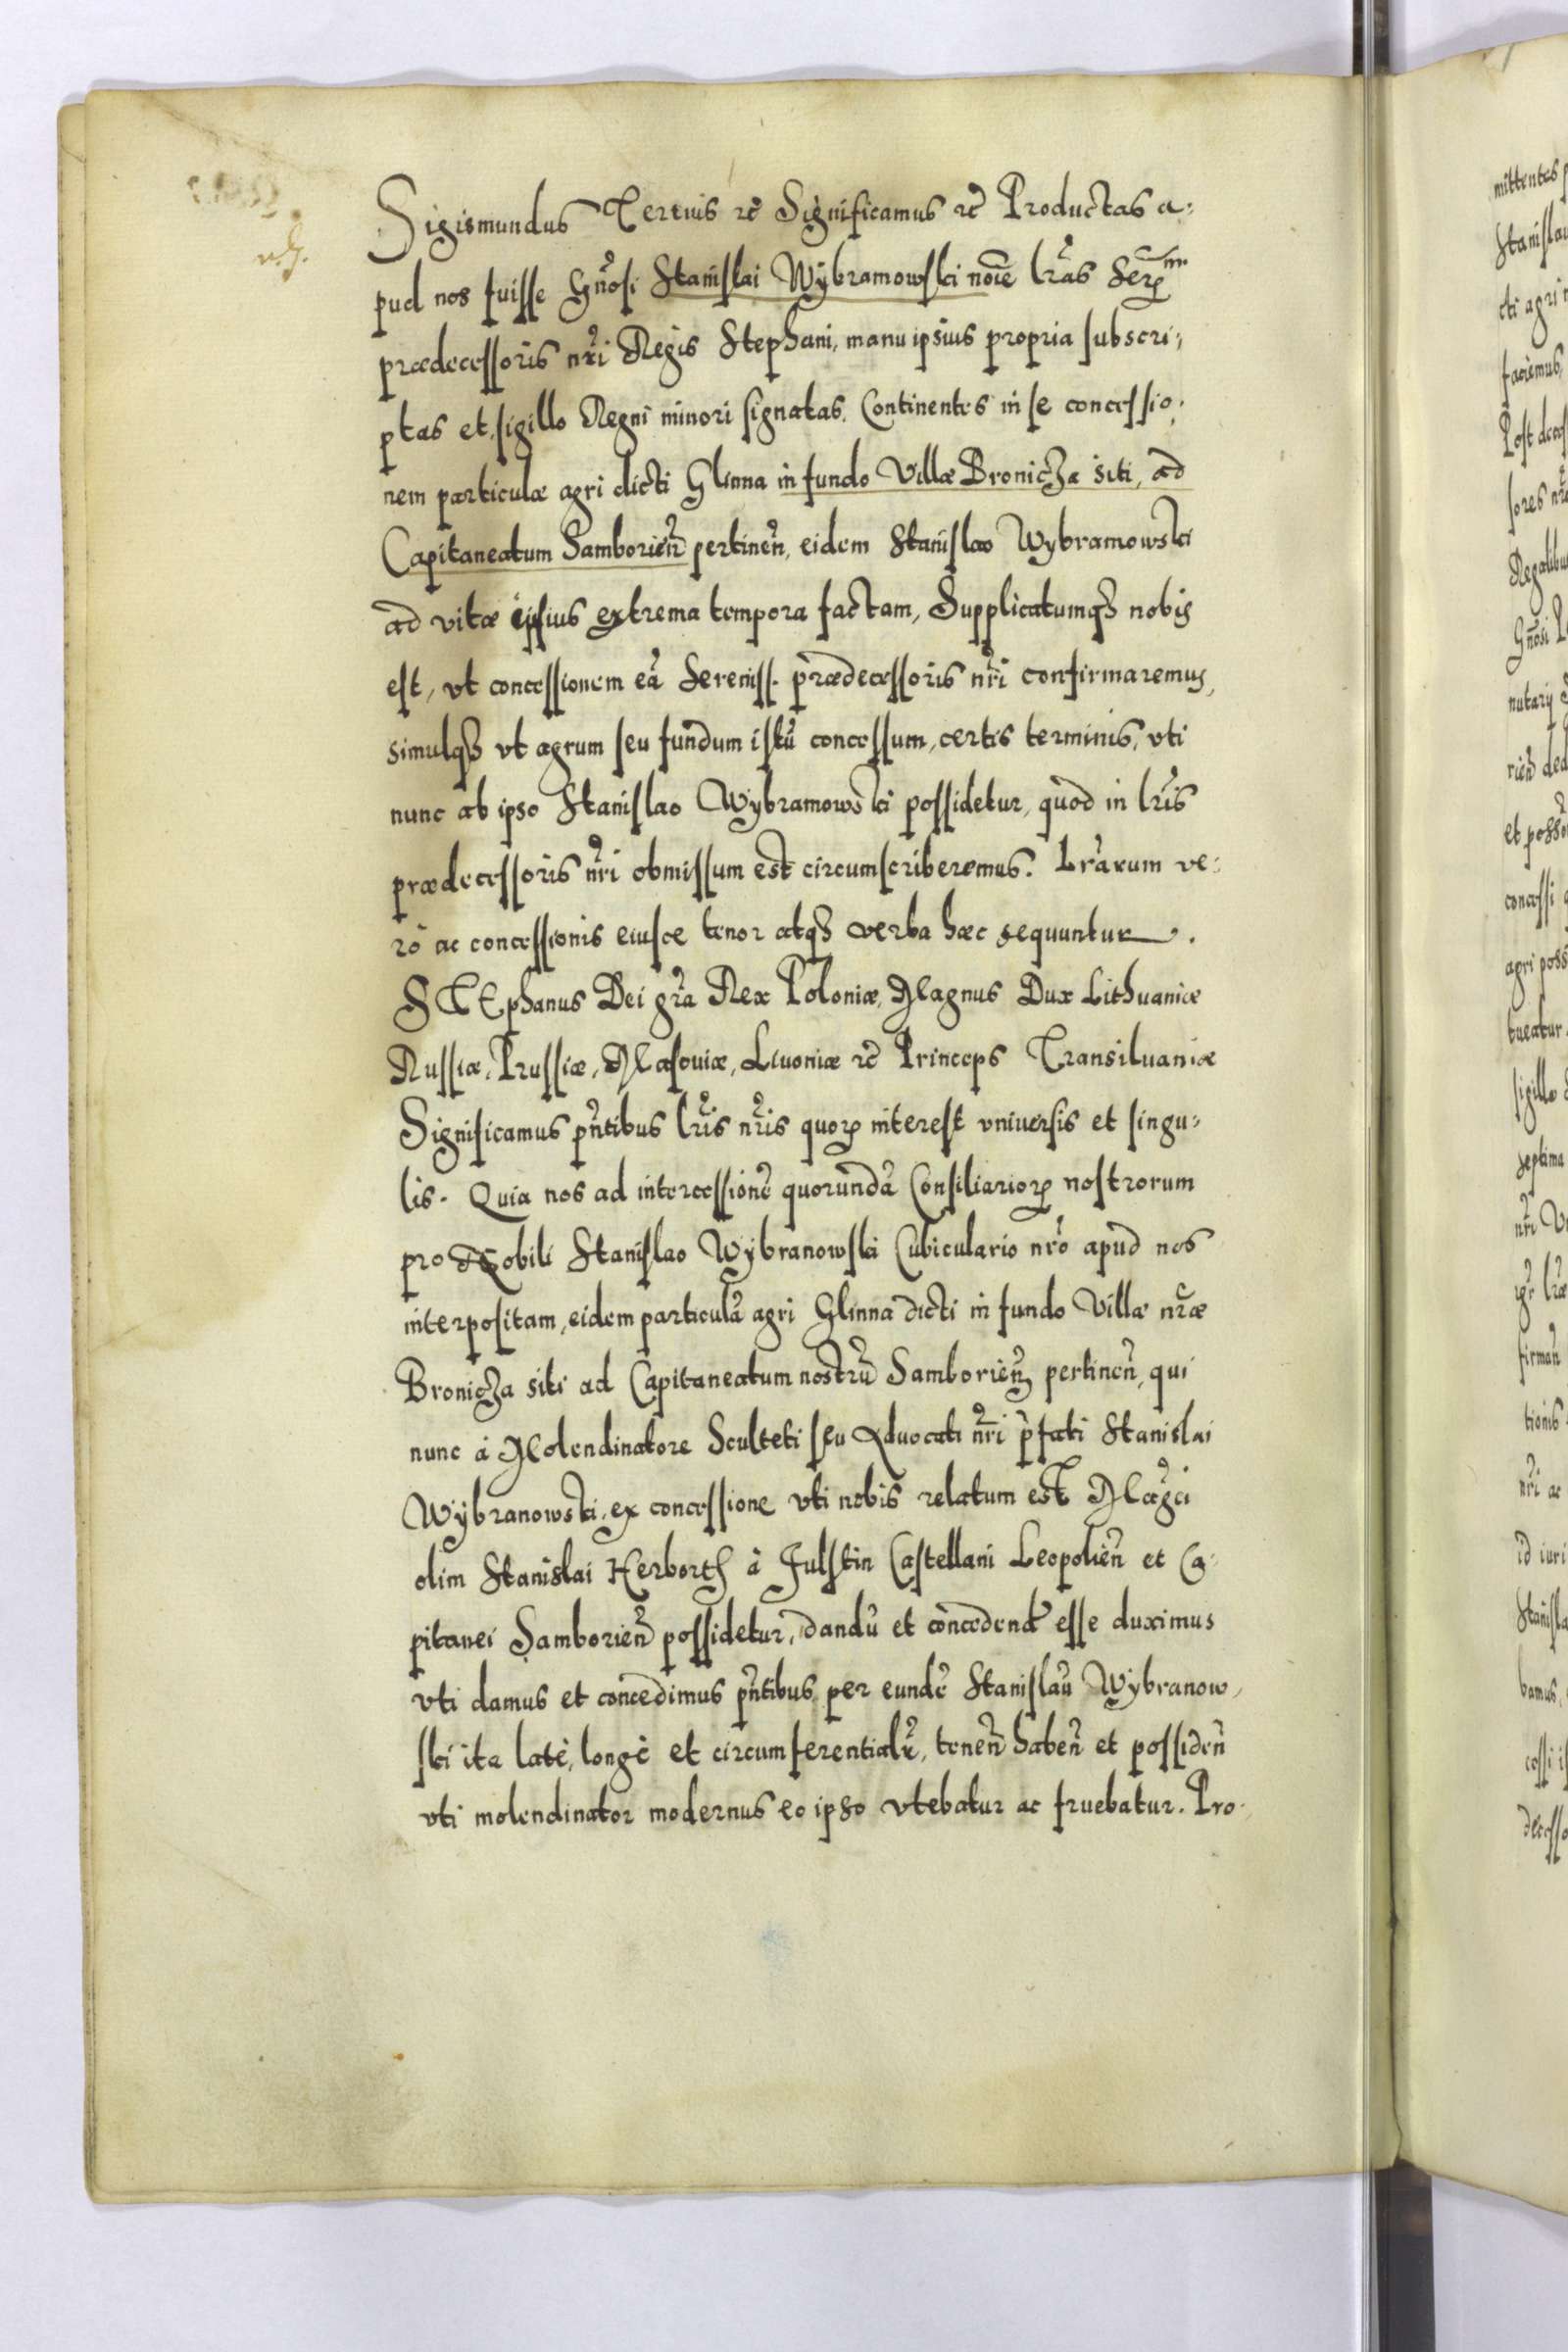 Sigismundus Tertius etc Significamus etc Productas a-
pud nos fuisse Gnosi Stanislai Wybramowski noie lras Sermi
prædecessoris nri Regis Stephani, manu ipsius propria subscri-
ptas et sigillo Regni minori signatas. Continentes in se concessio-
nem particulæ agri dicti Glinna in fundo Villæ Bronicza siti, ad
Capitaneatum Samborien pertinen, eidem Stanislao Wybramowski
ad vitæ ipsius extrema tempora factam, Supplicatumq3 nobis
est, vt concessionem eã Sereniss. prædecessoris nri confirmaremus,
simulq3 vt agrum seu fundum istũ concessum, certis terminis, vti
nunc ab ipso Stanislao Wybramowski possidetur, quod in lris
prædecessoris nri obmissum est circumscriberemus. Lrarum ve-
rò ac concessionis eiusce tenor atq3 verba hæc sequuntur.
STEphanus Dei gra Rex Poloniæ, Magnus Dux Lithuaniæ
Russiæ, Prussiæ, Masouiæ, Liuoniæ etc Princeps Transiluaniæ
Significamus pntibus lris nris quorũ interest vniuersis et singu-
lis. Quia nos ad intercessionẽ quorundã Consiliariorũ nostrorum
pro Nobili Stanislao Wybranowski Cubiculario nro apud nos
interpositam, eidem particulã agri Glinna dicti in fundo Villæ nræ
Bronicza siti ad Capitaneatum nostrũ Samborien pertinen, qui
nunc à Molendinatore Sculteti seu Aduocati nri pfati Stanislai
Wybranowski, ex concessione vti nobis relatum est Magci
olim Stanislai Herborth à Fulstin Castellani Leopolien et Ca-
pitanei Samborien possidetur, dandũ et concedendũ esse duximus
vti damus et concedimus pntibus per eundẽ Stanislaũ Wybranow-
ski ita latè, longè et circumferentialr, tenen haben et possiden
vti molendinator modernus eo ipso vtebatur ac fruebatur. Pro-